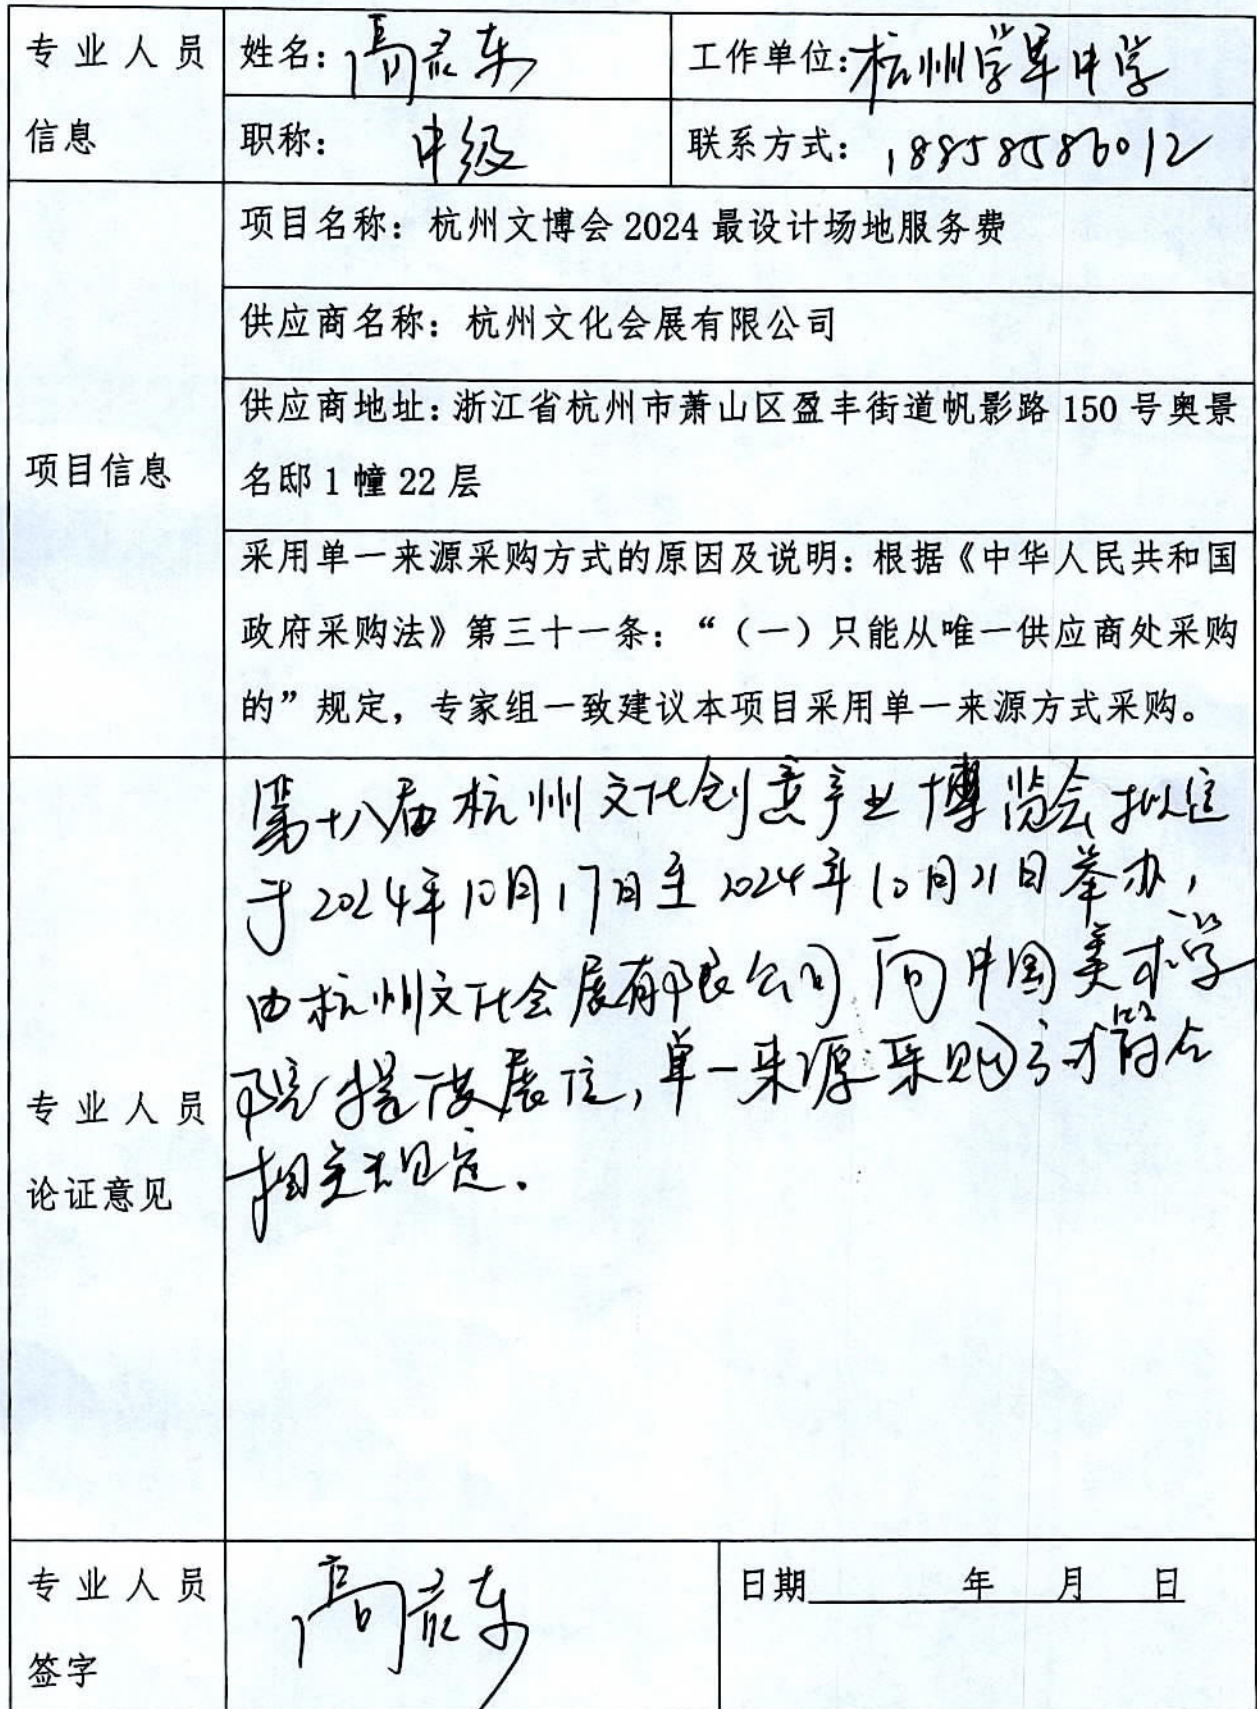 专业人员
信息
姓名：高京东
工作单位：杭州学军中学
职称：中级
联系方式：18858586012
项目信息
项目名称：杭州文博会2024最设计场地服务费
供应商名称：杭州文化会展有限公司
供应商地址：浙江省杭州市萧山区盈丰街道帆影路150号奥景
名邸1幢22层
采用单一来源采购方式的原因及说明：根据《中华人民共和国
政府采购法》第三十一条：“（一）只能从唯一供应商处采购
的”规定，专家组一致建议本项目采用单一来源方式采购。
专业人员
论证意见
第十八届杭州文化创意产业博览会拟定
于2024年10月17日至2024年10月21日举办，
由杭州文化会展有限公司向中国美术学
院提供展位，单一来源采购方才符合
相关规定.
专业人员
签字
高京东
日期 年 月 日